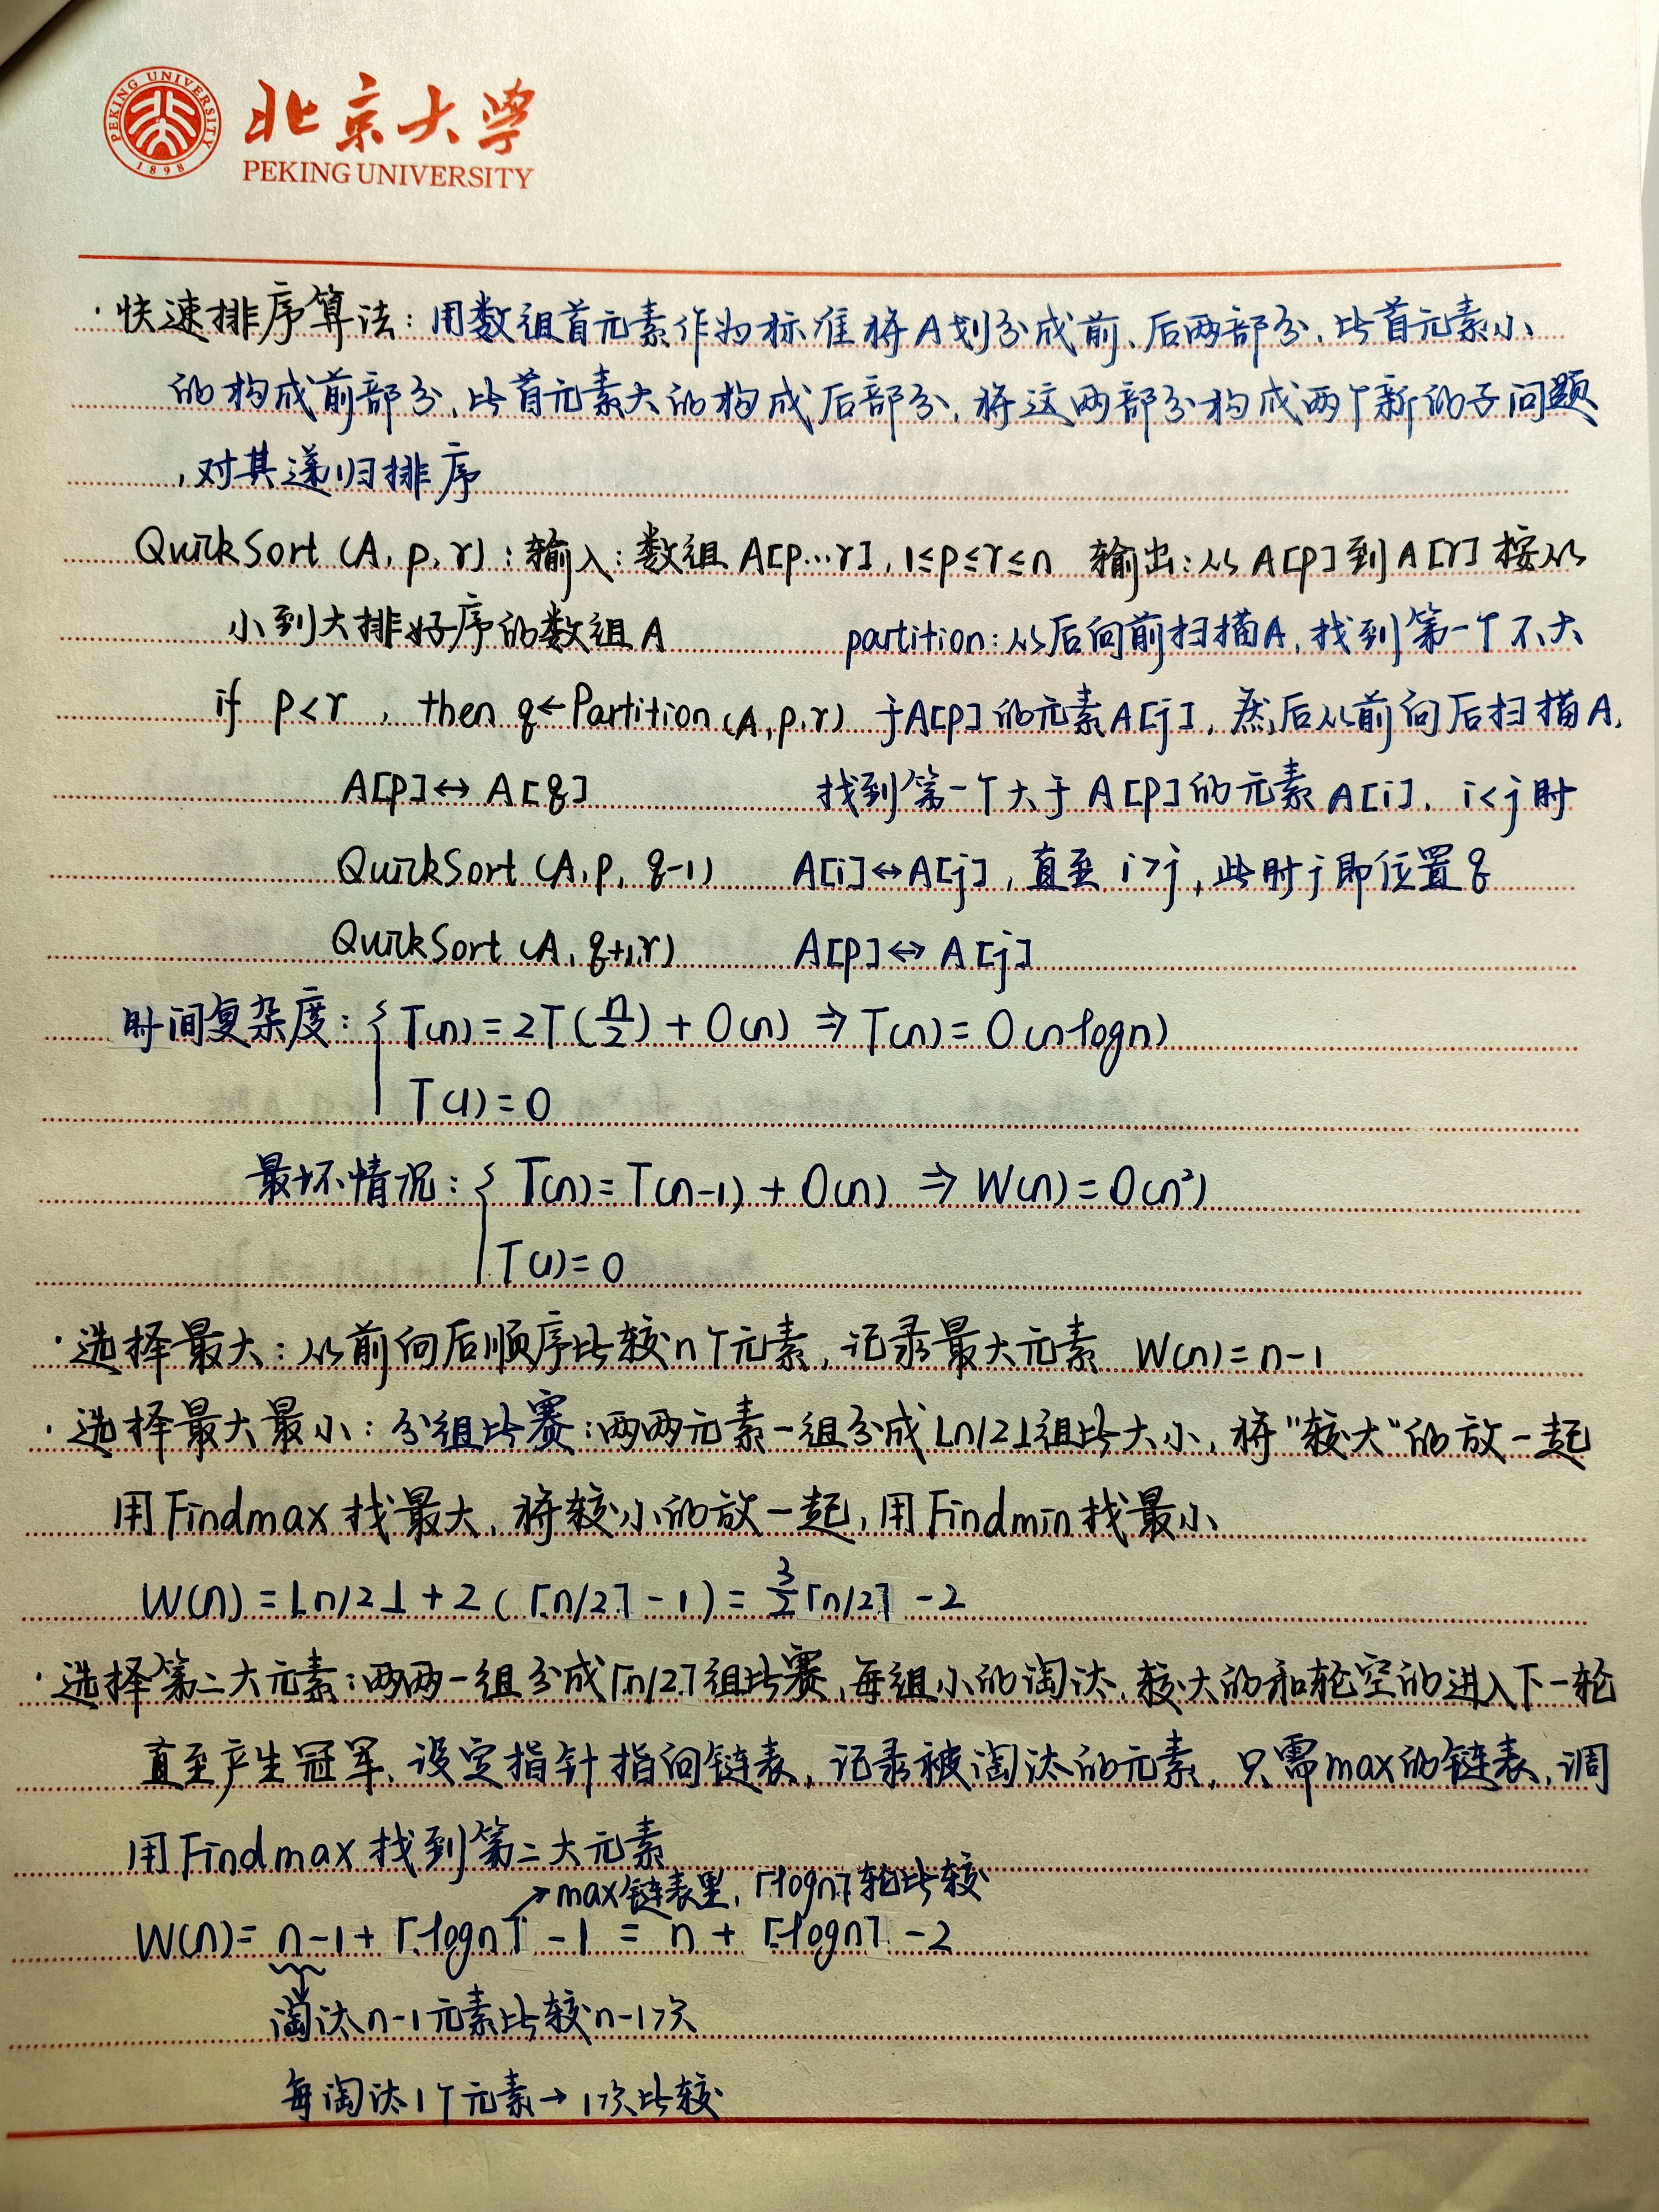 北京大学
PEKING UNIVERSITY
PEKING UNIVERSITY
1898
·快速排序算法:用数组首元素作为标准将A划分成前、后两部分,比首元素小
的构成前部分,比首元素大的构成后部分,将这两部分构成两个新的子问题
,对其递归排序
QuickSort (A, p, r):输入:数组 A[p…r], 1≤p≤r≤n 输出:从A[p]到A[r]按从
小到大排好序的数组A
if p<r , then q←Partition(A,p,r)
A[p]↔A[q]
QuickSort (A, p, q-1)
QuickSort (A, q+1,r)
partition:从后向前扫描A,找到第一个不大
于A[p]的元素A[j],然后从前向后扫描A,
找到第一个大于A[p]的元素A[i], i<j时
A[i]↔A[j],直至 i>j,此时j即位置q
A[p]↔A[j]
时间复杂度:{ T(n)=2T(n/2)+O(n) ⇒ T(n)=O(nlogn)
T(1)=0
最坏情况:{ T(n)=T(n-1)+O(n) ⇒ W(n)=O(n²)
T(1)=0
·选择最大:从前向后顺序比较n个元素,记录最大元素 W(n)=n-1
·选择最大最小:分组比赛:两两元素一组分成⌊n/2⌋组比大小,将"较大"的放一起
用Findmax找最大,将较小的放一起,用Findmin找最小
W(n)=⌊n/2⌋+2(⌈n/2⌉-1)=3/2⌈n/2⌉-2
·选择第二大元素:两两一组分成⌈n/2⌉组比赛,每组小的淘汰,较大的和轮空的进入下一轮
直至产生冠军、设定指针指向链表,记录被淘汰的元素,只需max的链表,调
用Findmax找到第二大元素
→max链表里,⌈logn⌉轮比较
W(n)=n-1+⌈logn⌉-1=n+⌈logn⌉-2
淘汰n-1元素比较n-1次
每淘汰1个元素→1次比较